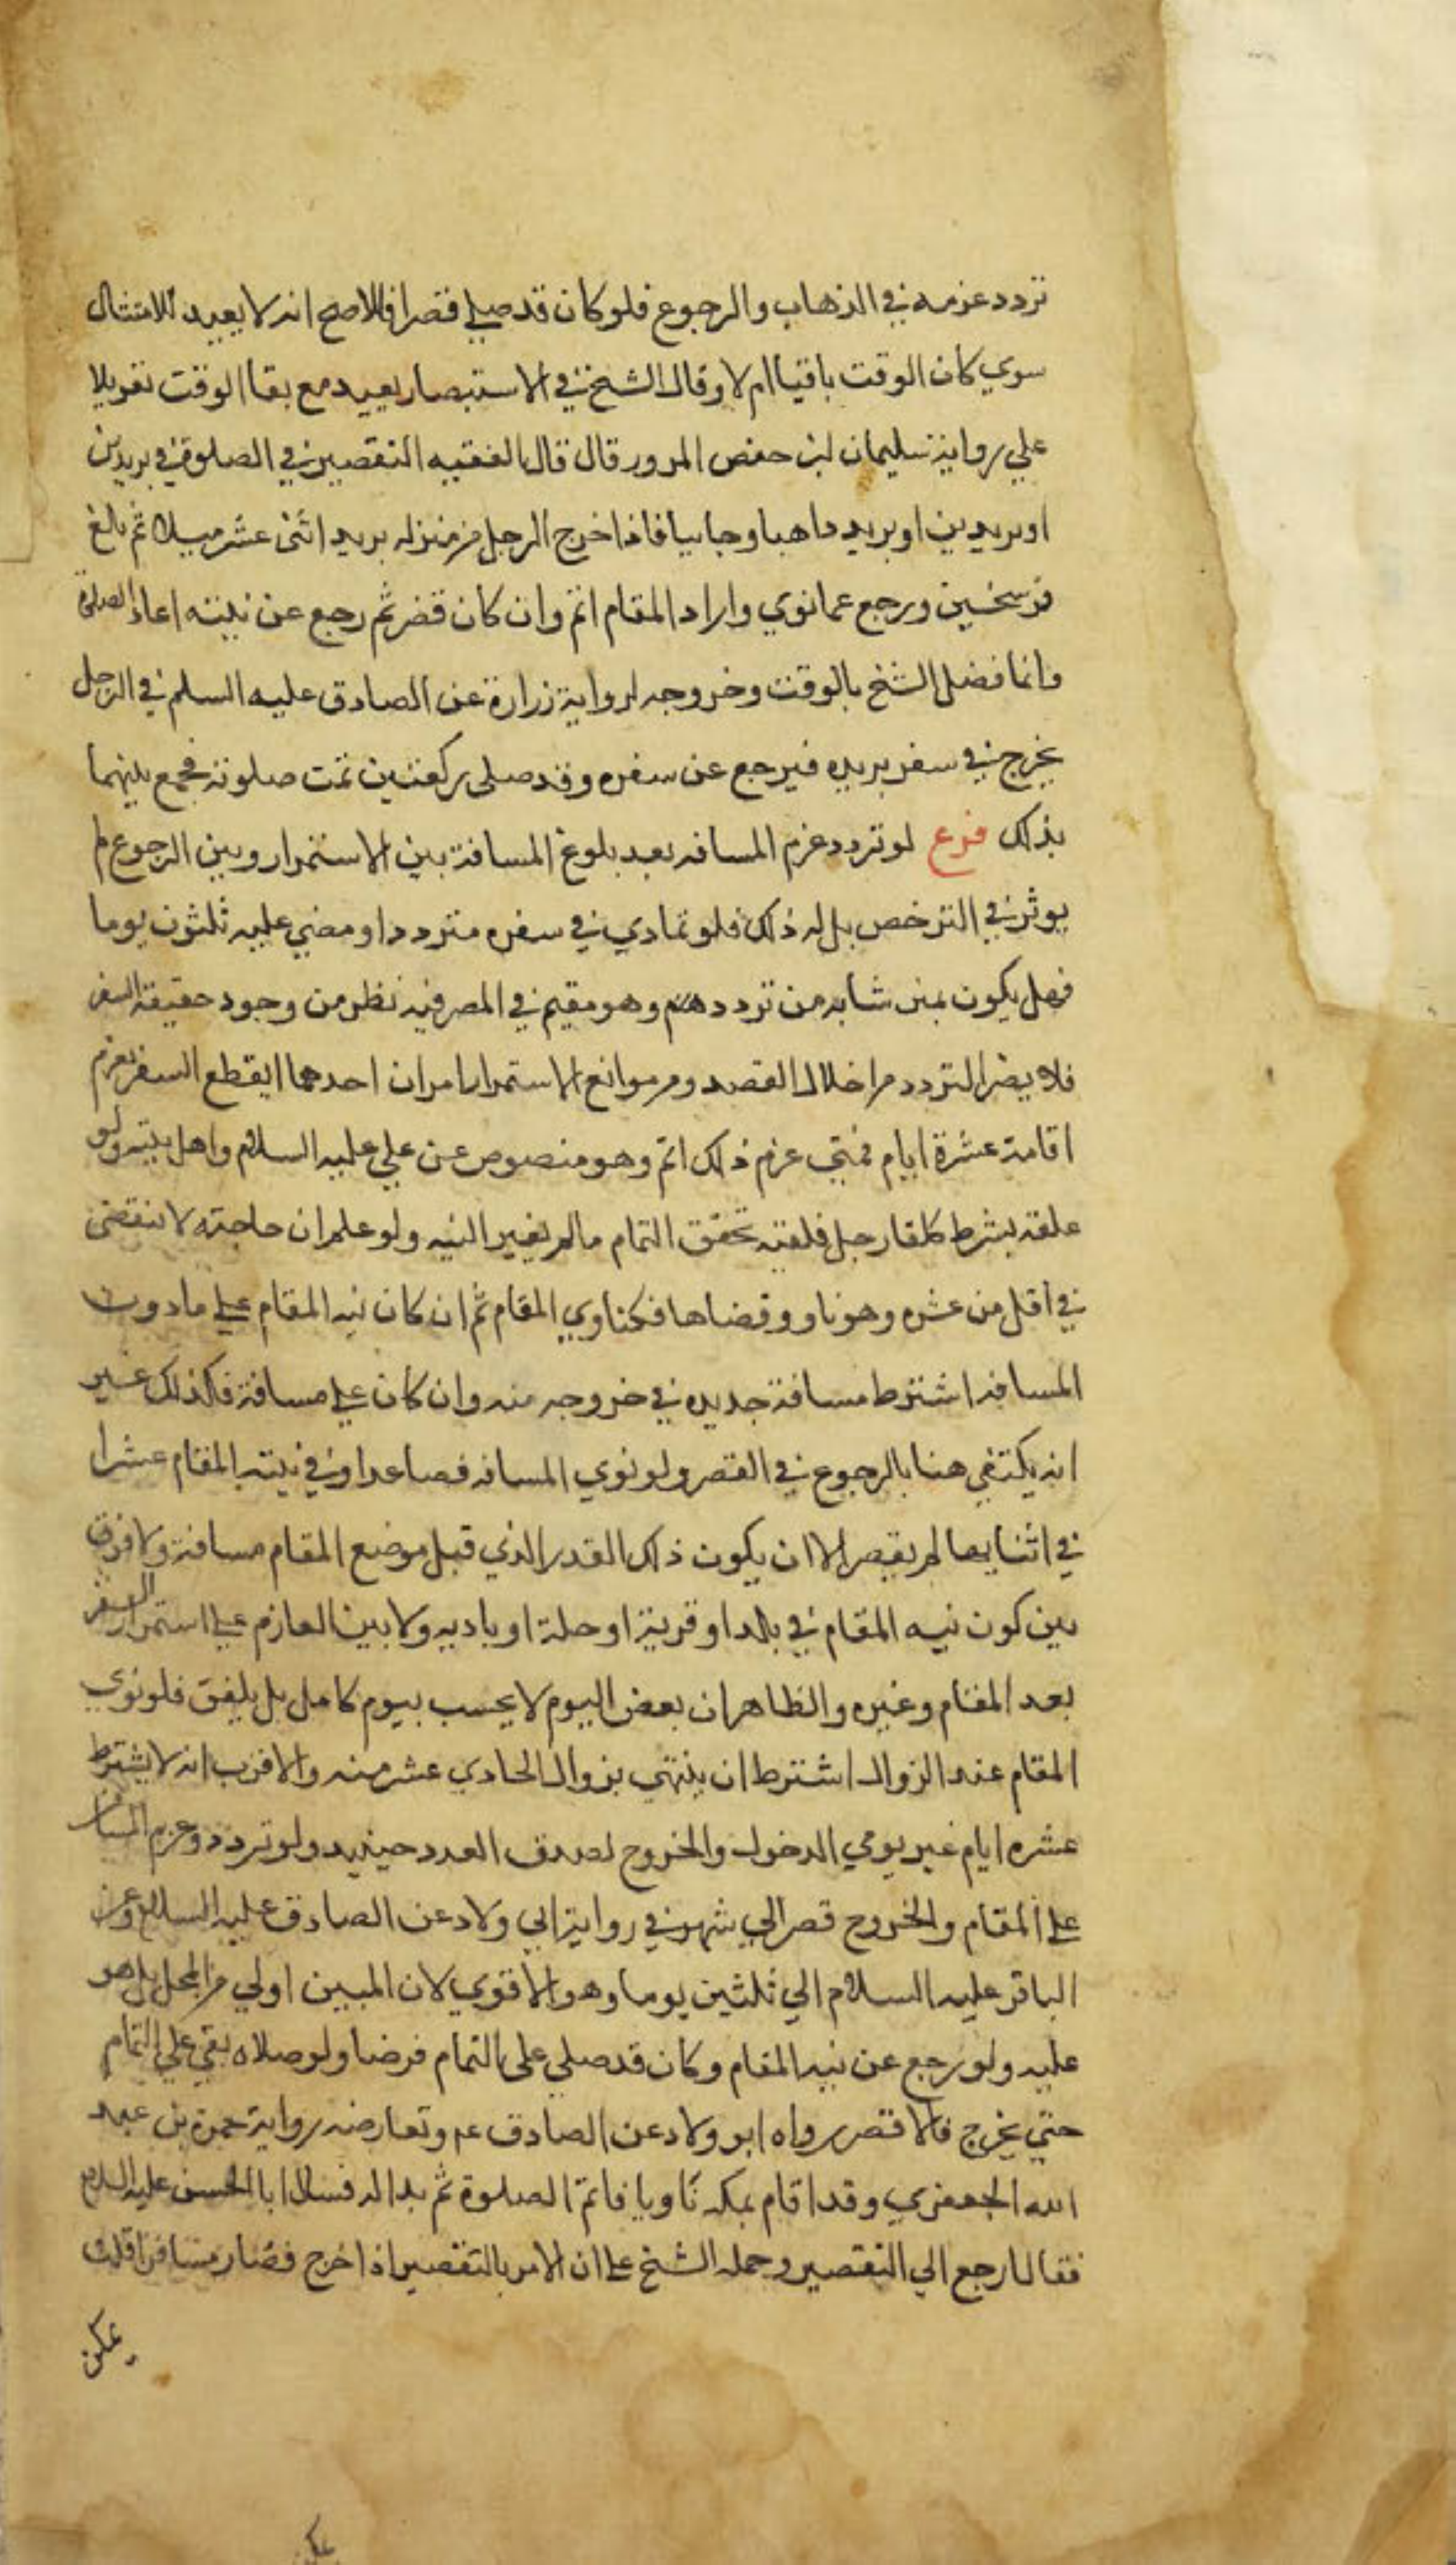 تردد عزمه في الذهاب والرجوع فلو كان قد صلي قصرا فالاصح انه لا يعيد للامتثال
سوي كان الوقت باقيا ام لا وقال الشيخ في الاستبصار يعيد مع بقا الوقت تعويلا
علي رواية سليمان بن حفص المرور قال قال الفقيه التقصير في الصلوة في بريدين
او بريدين او بريد داهبا وجاييا فاذا خرج الرجل من منزله بريد اثنى عشر ميلا ثم بلغ
فرسخين ورجع عما نوي واراد المقام اتم وان كان قصر ثم رجع عن نيته اعاد الصلوة
وانما فصل الشيخ بالوقت وخروجه لرواية زرارة عن الصادق عليه السلم في الرجل
يخرج في سفر يريده فيرجع عن سفره وقد صلى ركعتين تمت صلوته فجمع بينهما
بذلك فرع لو تردد عزم المسافر بعد بلوغ المسافة بين الاستمرار وبين الرجوع لم
يوثر في الترخص بل له ذلك فلو تمادي في سفره مترددا ومضي عليه ثلثون يوما
فهل يكون بمن شابه من تردد وهو مقيم في المصر فيه نظر من وجود حقيقة السفر
فلا يضر التردد من اخلال القصد ومر موانع الاستمرار امران احدهما ايقطع السفر بعزم
اقامة عشرة ايام فمتي عزم ذلك اتم وهو منصوص عن علي عليه السلام واهل بيته ولو
علقه بشرط كلقا رجل فلقيه تحقق التمام مالم يغير النيه ولو علم ان حاجته لا تنقضي
في اقل من عشره وهو ناو وقضاها فكناوي المقام ثم ان كان نيه المقام علي مادون
المسافه اشترط مسافة جديده في خروجه منه وان كان علي مسافة فكذلك غير
انه يكتفي هنا بالرجوع في القصر ولو نوي المسافه فصاعدا وفي نيته المقام عشرا
في اثنايها لم يقصر الا ان يكون ذلك القدر الذي قبل موضع المقام مسافة ولا فرق
بين كون نيه المقام في بلد او قرية او حلة او باديه ولا بين العازم علي استمرار السفر
بعد المقام وغيره والظاهر ان بعض اليوم لا يحسب بيوم كامل بل يلفق فلو نوي
المقام عند الزوال اشترط ان ينتهي بزوال الحادي عشر منه والاقرب انه لا يشترط
عشره ايام غير يومي الدخول والخروج لصدق العدد حينيد ولو تردد وعزم المسافر
علي المقام والخروج قصر الي شهر في رواية ابي ولاد عن الصادق عليه السلام وعن
الباقر عليه السلام الي ثلثين يوما وهو الاقوي لان المبين اولي من المجمل بل هو
عليه ولو رجع عن نيه المقام وكان قد صلي علي التمام فرضا ولو صلاه بقي علي التمام
حتي يخرج فالاقصر رواه ابو ولاد عن الصادق عم وتعارضه رواية حمزة بن عبد
الله الجعفري وقد اقام بمكه ناويا فاتم الصلوة ثم بدا له فسال ابا الحسن عليه السلام
فقال ارجع الي التقصير وحمله الشيخ علي ان الامر بالتقصير اذا خرج فصار مسافرا قلت
يمكن
يمكن